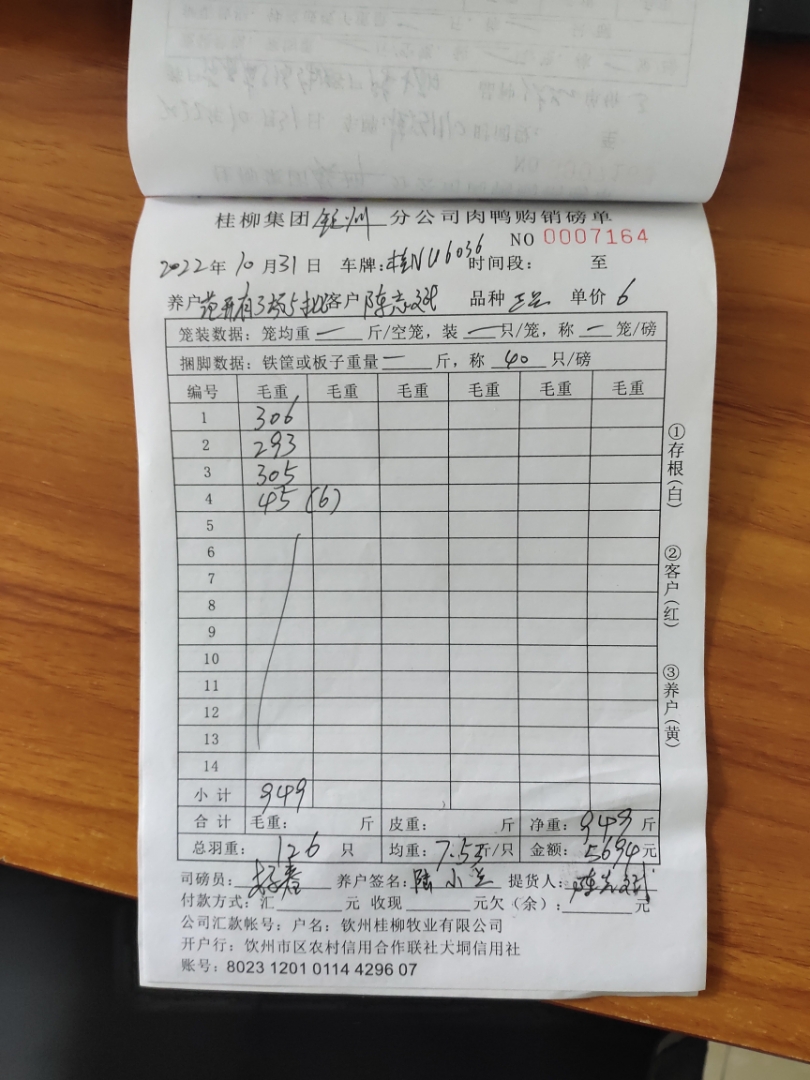 桂柳集团钦州分公司肉鸭购销磅单
NO 0007164
2022年10月31日 车牌:桂NU6036 时间段: 至
养户 范开有3场5批 客户 陈志斌 品种 三兰 单价 6
笼装数据: 笼均重 一 斤/空笼, 装 一 只/笼, 称 一 笼/磅
捆脚数据: 铁筐或板子重量 一 斤, 称 40 只/磅
编号 毛重 毛重 毛重 毛重 毛重 毛重
1 306
2 293
3 305
4 45 (6)
5
6
7
8
9
10
11
12
13
14
小计 949
合计 毛重: 斤 皮重: 斤 净重: 949 斤
总羽重: 126 只 均重: 7.53 斤/只 金额: 5694元
司磅员: 养户签名: 陆小兰 提货人: 陈志斌
付款方式: 汇 元 收现 元欠(余): 元
公司汇款帐号: 户名: 钦州桂柳牧业有限公司
开户行: 钦州市区农村信用合作联社大垌信用社
账号: 8023 1201 0114 4296 07
①存根(白)
②客户(红)
③养户(黄)